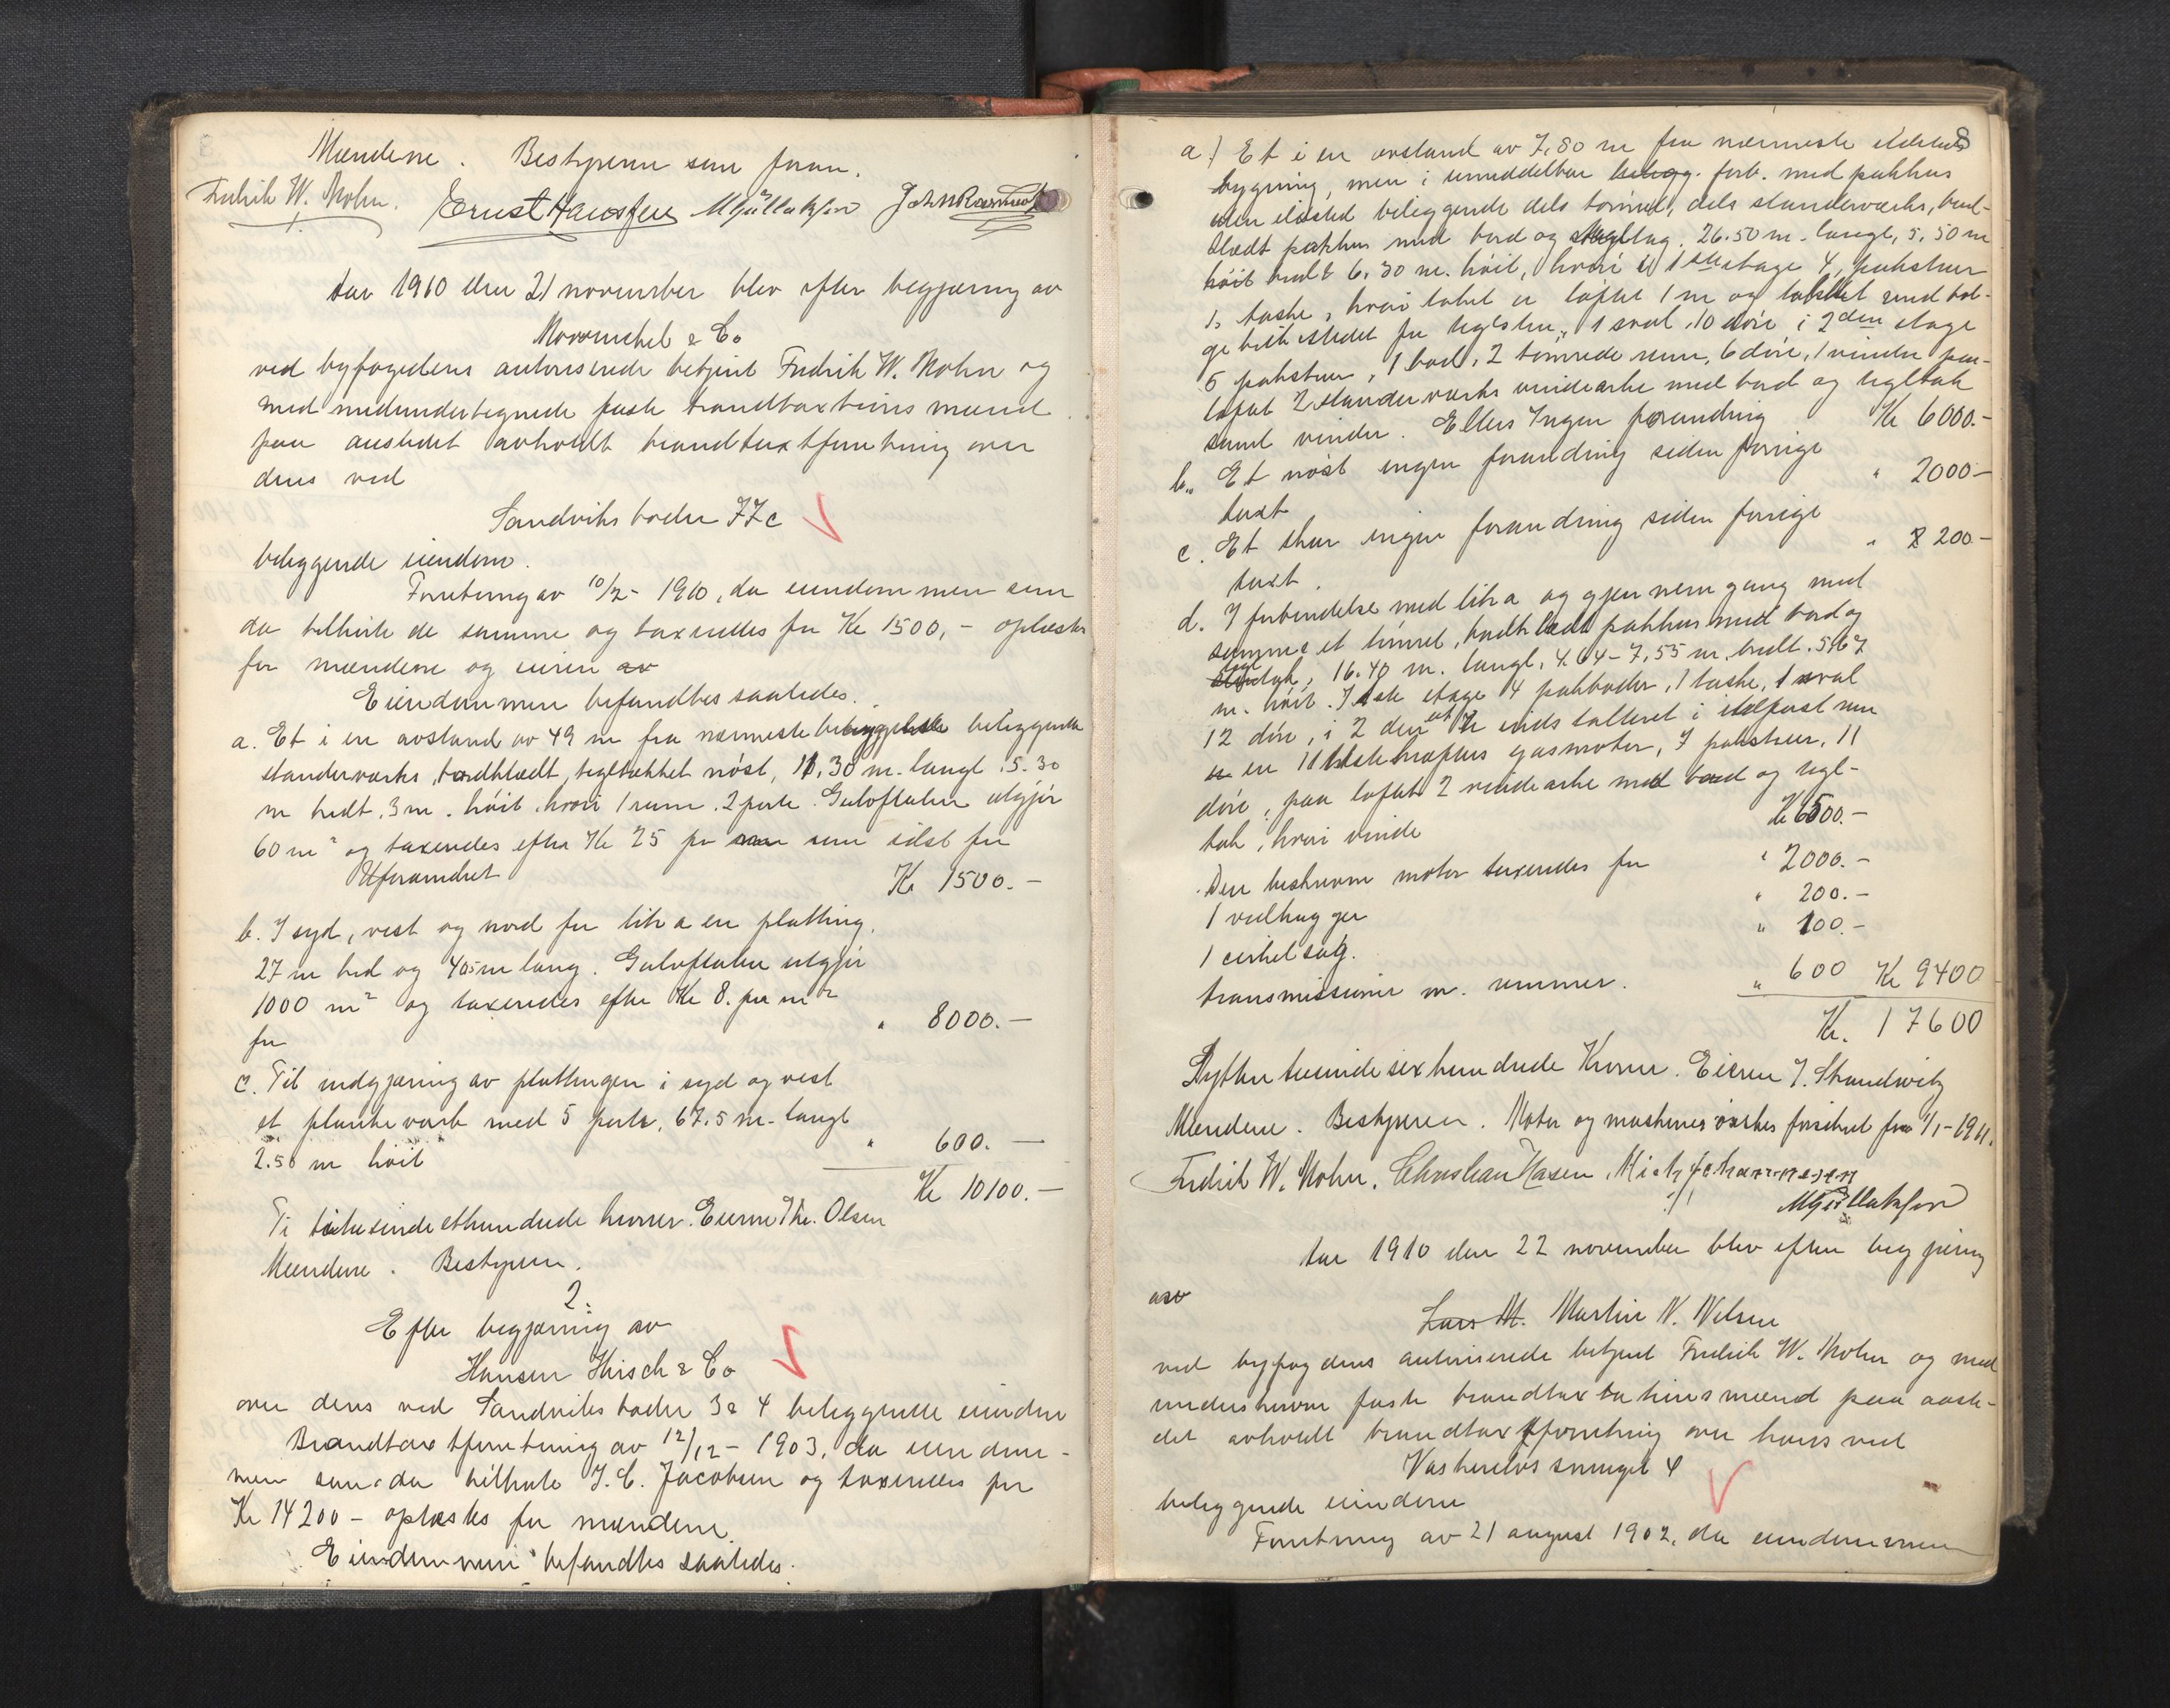 Mændene. Bestyreren som foran.
Fredrik W. Mohn. Ernst Hansen
Aar 1910 den 21 november blev efter begjæring av
& Co
ved byfogedens autoriserede betjent Fredrik W. Mohn og
med medundertegnede faste brandtaxtations mænd
paa aastedet avholdt brandtaxtforretning over
deres ved
Sandviksboder 77c
beliggende eiendom.
Forretning av 10/2 - 1910, da eiendommen som
da tilhørte de samme og taxeredes for Kr 1500,- oplæstes
for mændene og eieren
Eiendommen befandtes saaledes.
a. Et i en avstand av 49 m fra nærmeste bebyggelse beliggende
standerværks, bordklædt, tegltækket nøst, 11,30 m. langt, 5.30
m bredt, 3 m. høit, hvori 1 rum, 2 porte. Gulvflaten utgjør
60 m² og taxeredes efter Kr 25 pr som sidst for
Uforandret Kr 1500.-
b. I syd, vest og nord for litr a en platting,
27 m bred og 40.5 m lang. Gulvflaten utgjør
1000 m² og taxeredes efter Kr 8. pr m²
for " 8000.-
c. Til indgjæring av plattingen i syd og vest
et plankeverk med 5 porte, 67.5 m. langt
2.50 m høit " 600.-
Kr 10100.-
Ti tusinde ethundrede kroner. Eieren Th. Olsen
Mændene. Bestyreren.
2.
Efter begjæring av
Hansen Hirsch & Co
over deres ved Sandviksboder 3 & 4 beliggende eiendom
Brandtaxtforretning av 12/12 - 1903, da eiendom-
men som da tilhørte J. C. Jacobsen og taxeredes for
Kr 14200 - oplæstes for mændene.
Eiendommen befandtes saaledes.
8
a.) Et i en avstand av 7,80 m fra nærmeste ildsteds
bygning, men i umiddelbar forb. med pakhus
uten ildsted beliggende dels tømret, dels standerværks, bord-
klædt pakhus med bord og tegltag, 26.50 m. langt, 5,50 m
bredt 6,30 m. høit, hvori i 1ste etage 4 pakstuer
1 taske, hvori taket er løftet 1 m og tækket med bøl-
geblik istedet for teglsten, 1 sval, 10 døre i 2den etage
5 pakstuer, 1 bod, 2 tømrede rum, 6 døre, 1 vindu paa
loftet 2 standerværks vindearke med bord og tegltak
samt vinder. Ellers Ingen forandring Kr 6000.-
b. Et nøst ingen forandring siden forrige
taxt " 2000-
c. Et skur ingen forandring siden forrige
taxt. " 200-
d. I forbindelse med litr a og gjennemgang med
samme et tømret, bordklædt pakhus med bord og
tegltak, 16.40 m. langt, 4.64 - 7,55 m. bredt, 5,67
m. høit. I 1ste etage 4 pakboder, 1 taske, 1 sval
12 døre, i 2den et i ildfast rum
en 11 hestekræfters gasmotor, 7 pakstuer, 11
døre, paa loftet 2 vindearke med bord og tegl-
tak, hvori vinde Kr 6500.-
Den beskrevne motor taxeredes for " 2000.-
1 vedhugger " 200.-
1 cirkelsag. " 100.-
transmissioner m. remmer. " 600 Kr 9400
Kr. 17600
Sytten tusinde sex hundrede Kroner. Eieren J. Strandwitz
Mændene. Bestyreren. Motor og maskiner ønskes forsikret fra 1/1-1911.
Fredrik W. Mohn. Christian Hansen, Mich Johannesen
Aar 1910 den 22 november blev efter begjæring
av
Lars M. Martin N. Nilsen
ved byfogdens autoriserede betjent Fredrik W. Mohn og med
underskrevne faste brandtaxtationsmænd paa aaste-
det avholdt brandtaxtforretning over hans ved
Vaskerelvssmuget 4
beliggende eiendom
Forretning av 21 august 1902, da eiendommen